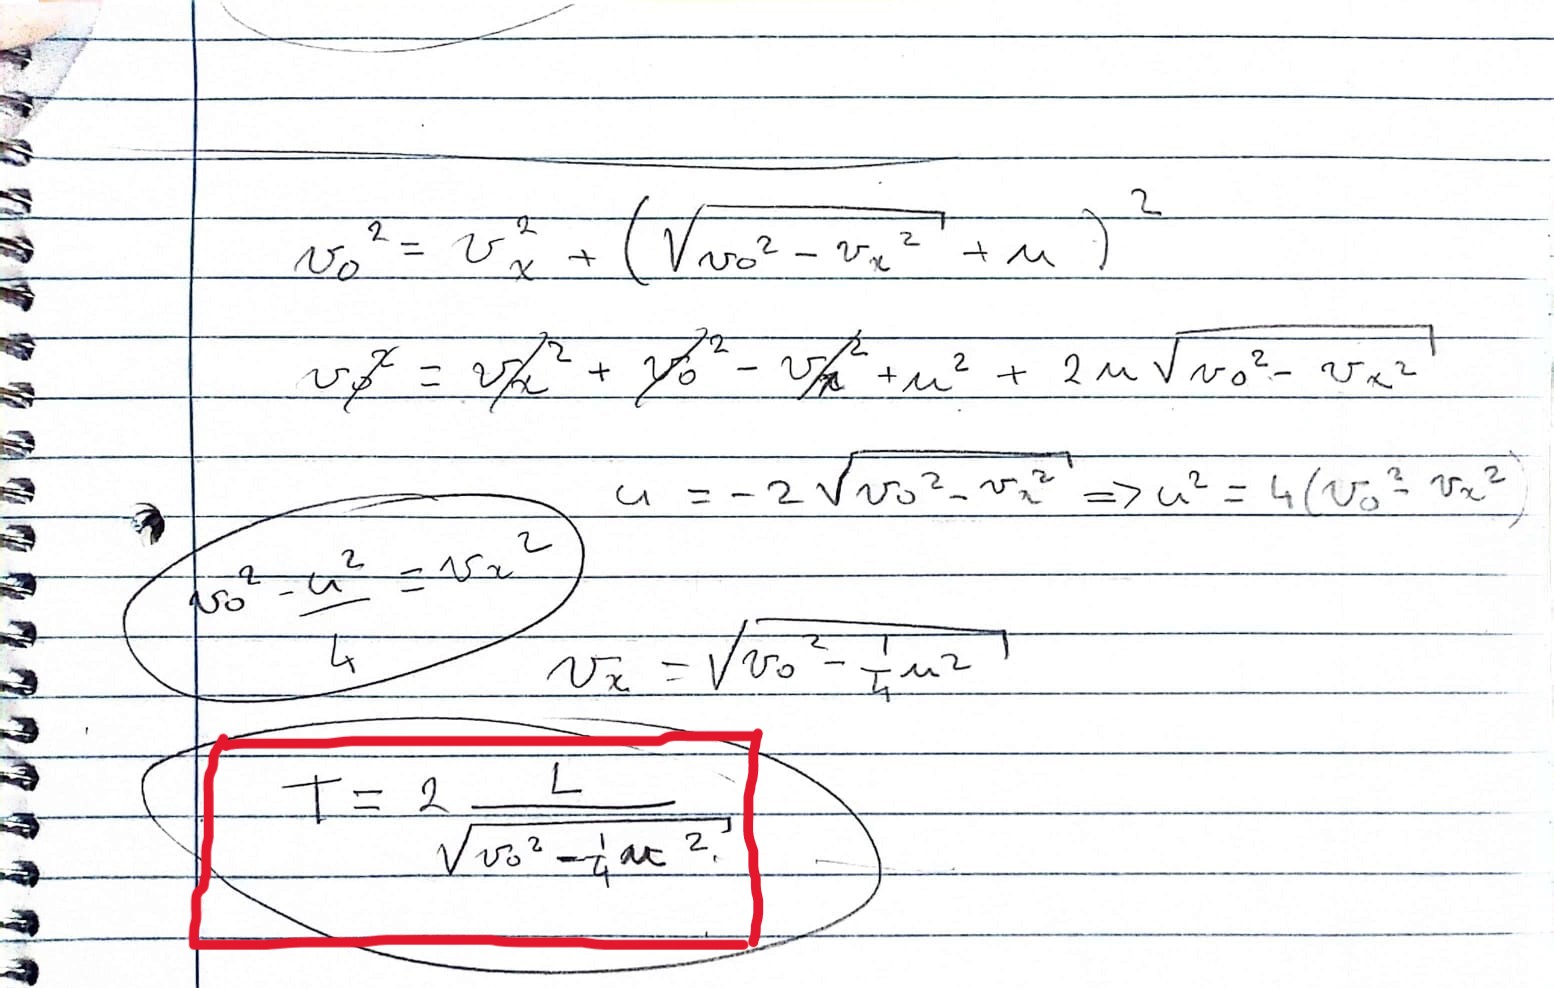 v₀² = vₓ² + (√(v₀² - vₓ²) + u)²
v₀² = vₓ² + v₀² - vₓ² + u² + 2u√(v₀² - vₓ²)
u = -2√(v₀² - vₓ²) => u² = 4(v₀² - vₓ²)
v₀² - u²/4 = vₓ²
vₓ = √(v₀² - 1/4 u²)
T = 2 L/√(v₀² - 1/4 u²)